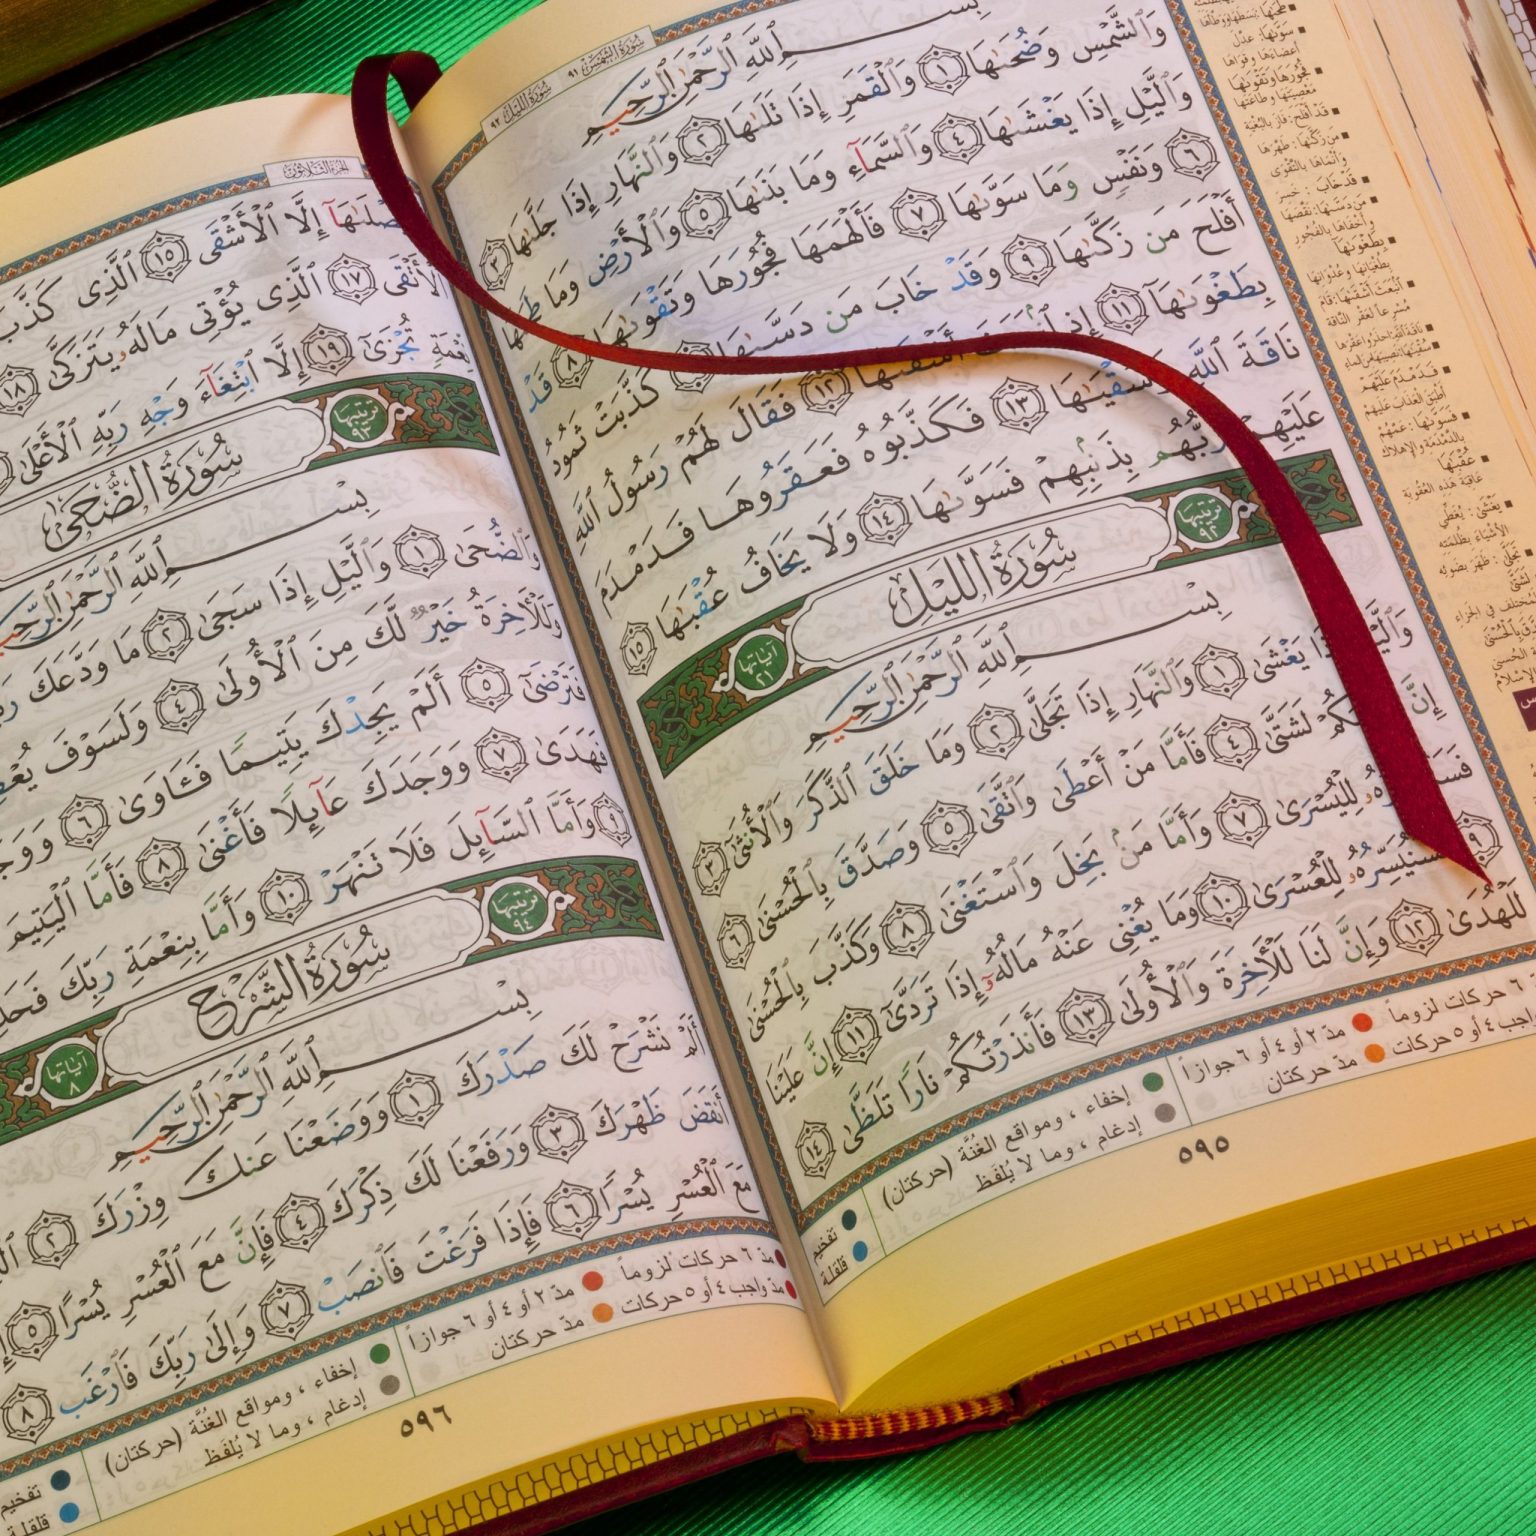 سُورَةُ الشَّمْسِ ٩١ سُورَةُ اللَّيْلِ ٩٢
بِسْمِ ٱللَّهِ ٱلرَّحْمَٰنِ ٱلرَّحِيمِ
وَٱلشَّمْسِ وَضُحَىٰهَا ١ وَٱلْقَمَرِ إِذَا تَلَىٰهَا ٢ وَٱلنَّهَارِ إِذَا جَلَّىٰهَا ٣
وَٱلَّيْلِ إِذَا يَغْشَىٰهَا ٤ وَٱلسَّمَآءِ وَمَا بَنَىٰهَا ٥ وَٱلْأَرْضِ وَمَا طَحَىٰهَا
٦ وَنَفْسٍ وَمَا سَوَّىٰهَا ٧ فَأَلْهَمَهَا فُجُورَهَا وَتَقْوَىٰهَا ٨ قَدْ
أَفْلَحَ مَن زَكَّىٰهَا ٩ وَقَدْ خَابَ مَن دَسَّىٰهَا كَذَّبَتْ ثَمُودُ
بِطَغْوَىٰهَآ ١١ إِذِ أَشْقَىٰهَا ١٢ فَقَالَ لَهُمْ رَسُولُ ٱللَّهِ
نَاقَةَ ٱللَّهِ وَسُقْيَٰهَا ١٣ فَكَذَّبُوهُ فَعَقَرُوهَا فَدَمْدَمَ
عَلَيْهِمْ رَبُّهُم بِذَنۢبِهِمْ فَسَوَّىٰهَا ١٤ وَلَا يَخَافُ عُقْبَٰهَا ١٥
ترتيبها ٩٢ سُورَةُ اللَّيْلِ آياتها ٢١
بِسْمِ ٱللَّهِ ٱلرَّحْمَٰنِ ٱلرَّحِيمِ
وَٱلَّيْلِ إِذَا يَغْشَىٰ ١ وَٱلنَّهَارِ إِذَا تَجَلَّىٰ ٢ وَمَا خَلَقَ ٱلذَّكَرَ وَٱلْأُنثَىٰٓ ٣
إِنَّ لَشَتَّىٰ ٤ فَأَمَّا مَنْ أَعْطَىٰ وَٱتَّقَىٰ ٥ وَصَدَّقَ بِٱلْحُسْنَىٰ ٦
لِلْيُسْرَىٰ ٧ وَأَمَّا مَنۢ بَخِلَ وَٱسْتَغْنَىٰ ٨ وَكَذَّبَ بِٱلْحُسْنَىٰ
٩ فَسَنُيَسِّرُهُۥ لِلْعُسْرَىٰ ١٠ وَمَا يُغْنِى عَنْهُ مَالُهُۥٓ إِذَا تَرَدَّىٰٓ ١١ إِنَّ عَلَيْنَا
لَلْهُدَىٰ ١٢ وَإِنَّ لَنَا لَلْأَخِرَةَ وَٱلْأُولَىٰ ١٣ فَأَنذَرْتُكُمْ نَارًا تَلَظَّىٰ ١٤
٦ حركات لزوماً مدّ ٢ أو ٤ أو ٦ جوازاً إخفاء ، ومواقع الغُنَّة (حركتان) تفخيم
واجب ٤ أو ٥ حركات مدّ حركتان إدغام ، وما لا يُلفَظ قلقلة
٥٩٥
سَوَّىٰهَا: عدّل
أعضاءها وقواها
فُجُورَهَا وَتَقْوَىٰهَا
معصيتها وطاعتها
قَدْ أَفْلَحَ: فاز بالبُغية
مَن زَكَّىٰهَا: طهّرها
وأنماها بالتقوى
قَدْ خَابَ: خسر
مَن دَسَّىٰهَا: نقّصها
وأخفاها بالفجور
بِطَغْوَىٰهَآ
بطغيانها وعُدوانها
ٱنۢبَعَثَ أَشْقَىٰهَا: قام
مُسرعا لعقر الناقة
فَدَمْدَمَ عَلَيْهِمْ
أطبق العذاب عليهم
فَسَوَّىٰهَا: عمّهم
بالدّمدمة والإهلاك
عُقْبَٰهَا
عاقبة هذه العقوبة
يَغْشَىٰ: يُغطّي
الأشياء بظلمته
تَجَلَّىٰ: ظهر بضوئه
الجزء الثلاثون
يَصْلَىٰهَآ إِلَّا ٱلْأَشْقَى ١٥ ٱلَّذِى كَذَّبَ
ٱلْأَتْقَى ١٧ ٱلَّذِى يُؤْتِى مَالَهُۥ يَتَزَكَّىٰ ١٨
نِّعْمَةٍ تُجْزَىٰٓ ١٩ إِلَّا ٱبْتِغَآءَ وَجْهِ رَبِّهِ ٱلْأَعْلَىٰ
ترتيبها ٩٣ سُورَةُ الضُّحَىٰ
بِسْمِ ٱللَّهِ ٱلرَّحْمَٰنِ ٱلرَّحِيمِ
وَٱلضُّحَىٰ ١ وَٱلَّيْلِ إِذَا سَجَىٰ ٢ مَا وَدَّعَكَ
وَلَلْأَخِرَةُ خَيْرٌ لَّكَ مِنَ ٱلْأُولَىٰ ٤ وَلَسَوْفَ
فَتَرْضَىٰٓ ٥ أَلَمْ يَجِدْكَ يَتِيمًا فَـَٔاوَىٰ ٦
فَهَدَىٰ ٧ وَوَجَدَكَ عَآئِلًا فَأَغْنَىٰ ٨ فَأَمَّا ٱلْيَتِيمَ
٩ وَأَمَّا ٱلسَّآئِلَ فَلَا تَنْهَرْ ١٠ وَأَمَّا بِنِعْمَةِ رَبِّكَ
ترتيبها ٩٤ سُورَةُ الشَّرْحِ آياتها ٨
بِسْمِ ٱللَّهِ ٱلرَّحْمَٰنِ ٱلرَّحِيمِ
أَلَمْ نَشْرَحْ لَكَ صَدْرَكَ ١ وَوَضَعْنَا عَنكَ وِزْرَكَ ٢
أَنقَضَ ظَهْرَكَ ٣ وَرَفَعْنَا لَكَ ذِكْرَكَ ٤ فَإِنَّ مَعَ ٱلْعُسْرِ يُسْرًا ٥
مَعَ ٱلْعُسْرِ يُسْرًا ٦ فَإِذَا فَرَغْتَ فَٱنصَبْ ٧ وَإِلَىٰ رَبِّكَ فَٱرْغَب ٨
مدّ ٦ حركات لزوماً مدّ ٢ أو ٤ أو ٦ جوازاً إخفاء ، ومواقع الغُنَّة (حركتان) تفخيم
مدّ واجب ٤ أو ٥ حركات مدّ حركتان إدغام ، وما لا يُلفَظ قلقلة
٥٩٦